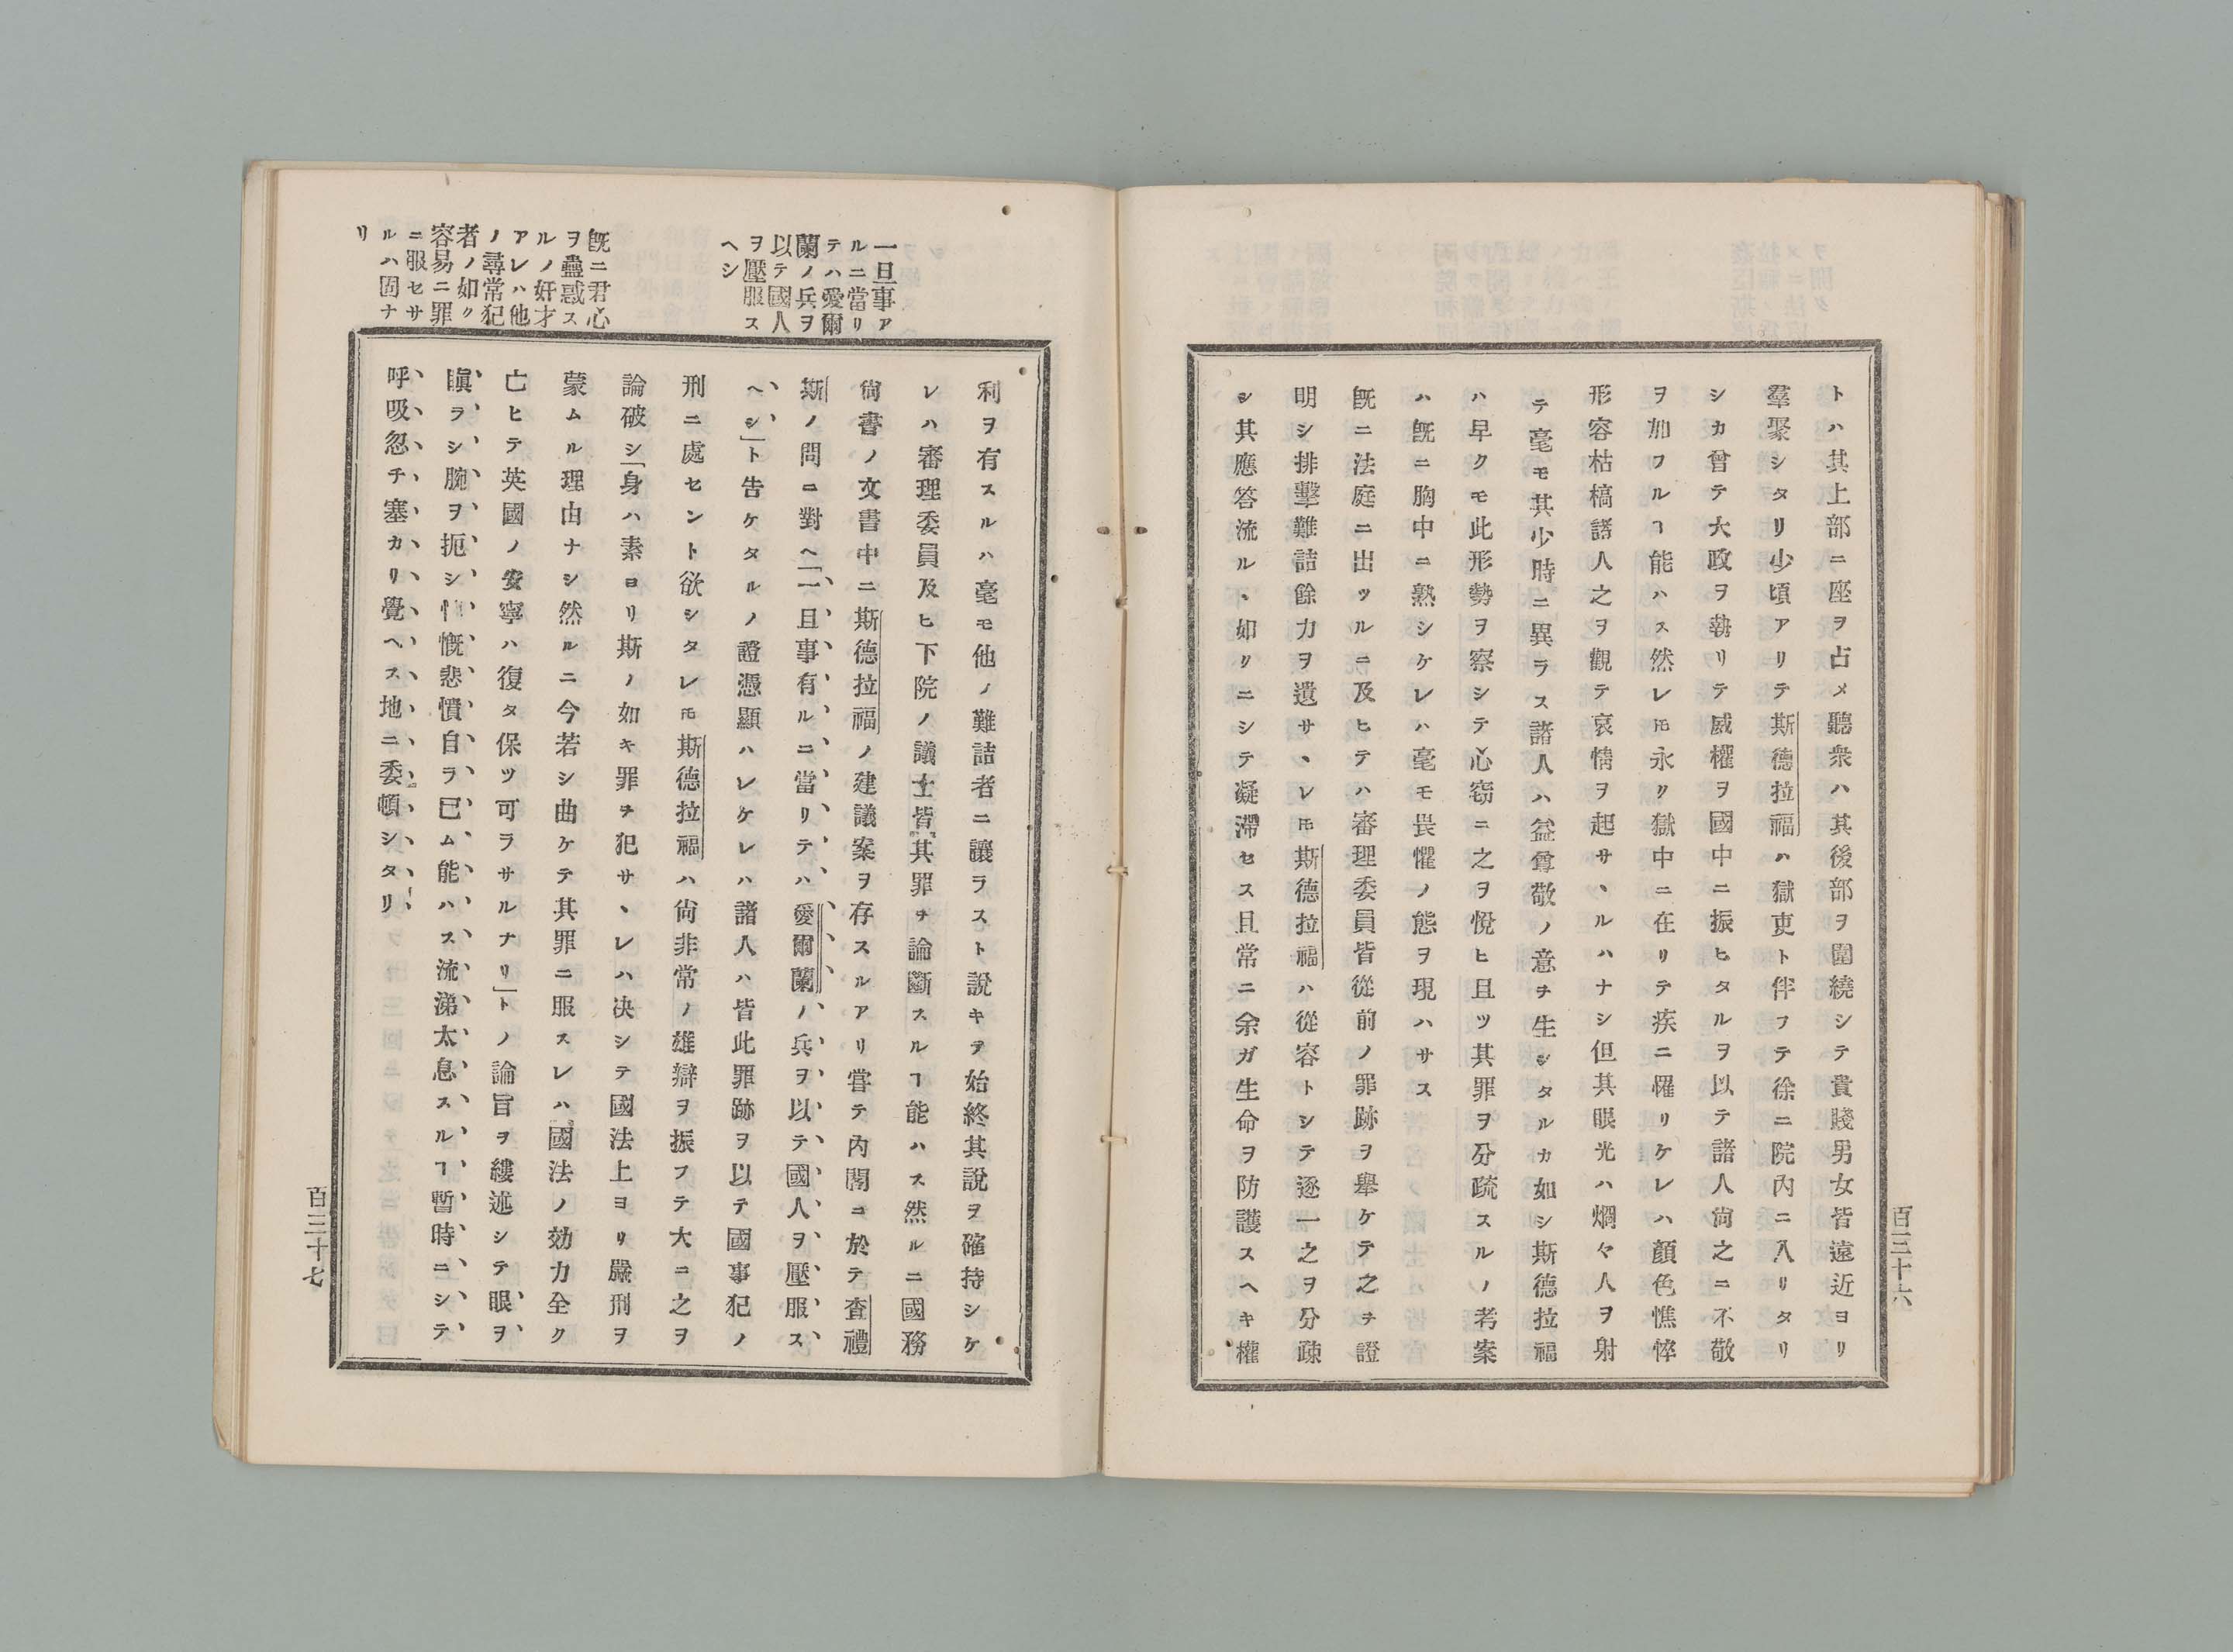 百三十六
トハ其上部ニ座ヲ占メ聽衆ハ其後部ヲ圍繞シテ貴賤男女皆遠近ヨリ
羣聚シタリ少頃アリテ斯德拉福ハ獄吏ト伴フテ徐ニ院內ニ入リタリ
シカ曾テ大政ヲ執リテ威權ヲ國中ニ振ヒタルヲ以テ諸人尙之ニ不敬
ヲ加フルヿ能ハス然レ𪜈永ク獄中ニ在リテ疾ニ罹リケレハ顏色憔悴
形容枯槁諸人之ヲ觀テ哀情ヲ起サヽルハナシ但其眼光ハ烱々人ヲ射
テ毫モ其少時ニ異ラス諸人ハ益尊敬ノ意ヲ生シタルカ如シ斯德拉福
ハ早クモ此形勢ヲ察シテ心窃ニ之ヲ悅ヒ且ツ其罪ヲ分疏スルノ考案
ハ旣ニ胸中ニ熟シケレハ毫モ畏懼ノ態ヲ現ハサス
旣ニ法庭ニ出ツルニ及ヒテハ審理委員皆從前ノ罪跡ヲ擧ケテ之ヲ證
明シ排擊難詰餘力ヲ遺サヽレ𪜈斯德拉福ハ從容トシテ逐一之ヲ分疎
シ其應答流ルヽ如クニシテ凝滯セス且常ニ余ガ生命ヲ防護スヘキ權
利ヲ有スルハ毫モ他ノ難詰者ニ讓ラスト說キテ始終其說ヲ確持シケ
レハ審理委員及ヒ下院ノ議士皆其罪ヲ論斷スルヿ能ハス然ルニ國務
尙書ノ文書中ニ斯德拉福ノ建議案ヲ存スルアリ甞テ內閣ニ於テ査禮
斯ノ問ニ對ヘ「一旦事有ルニ當リテハ愛爾蘭ノ兵ヲ以テ國人ヲ壓服ス
ヘシ」ト告ケタルノ證憑顯ハレケレハ諸人ハ皆此罪跡ヲ以テ國事犯ノ
刑ニ處セント欲シタレ𪜈斯德拉福ハ尙非常ノ雄辯ヲ振フテ大ニ之ヲ
論破シ「身ハ素ヨリ斯ノ如キ罪ヲ犯サヽレハ决シテ國法上ヨリ嚴刑ヲ
蒙ムル理由ナシ然ルニ今若シ曲ケテ其罪ニ服スレハ國法ノ効力全ク
亡ヒテ英國ノ安寧ハ復タ保ツ可ラサルナリ」トノ論旨ヲ縷述シテ眼ヲ
瞋ラシ腕ヲ扼シ慨悲憤自ラ已ム能ハス流涕太息スルヿ暫時ニシテ
呼吸忽チ塞カリ覺ヘス地ニ委頓シタリ
一旦事ア
ルニ當リ
テハ愛爾
蘭ノ兵ヲ
以テ國人
ヲ壓服ス
ヘシ
旣ニ君心
ヲ蠱惑ス
ルノ奸才
アレハ他
ノ尋常犯
者ノ如ク
容易ニ罪
ニ服セサ
ルハ固ナ
リ
百三十七